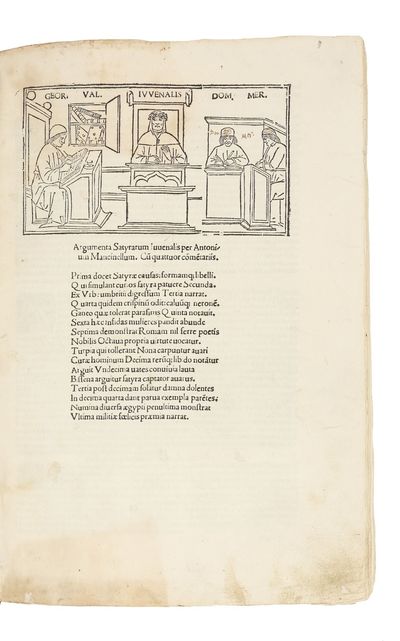 GEOR. VAL. IVVENALIS DOM. MER.
Argumenta Satyrarum Iuuenalis per Antoniũ
um Mancinellum. Cũ quattuor cõmẽtariis.
Prima docet Satyræ causas: formamq; libelli.
Qui simulant curios satyra patuere Secunda.
Ex Vrbe umbritii digressum Tertia narrat.
Quarta quidem crispinũ odit: caluũq; neronẽ.
Ganeo quæ tolerat parasitus Quinta notauit.
Sexta hæc infidas mulieres pandit abunde
Septima demonstrat Romam nil ferre poetis
Nobilis Octaua propria uirtute uocatur.
Turpia qui tollerant Nona carpuntur auari
Curæ hominum Decima rerũq; libido notãtur
Arguit Vndecima uates conuiuia lauta
Bissena arguitur satyra captator auarus.
Tertia post decimam solatur damna dolentes
In decima quarta dant parua exempla parẽtes:
Numina diuersa ægypti penultima monstrat
Vltima militiæ fœlicis præmia narrat.